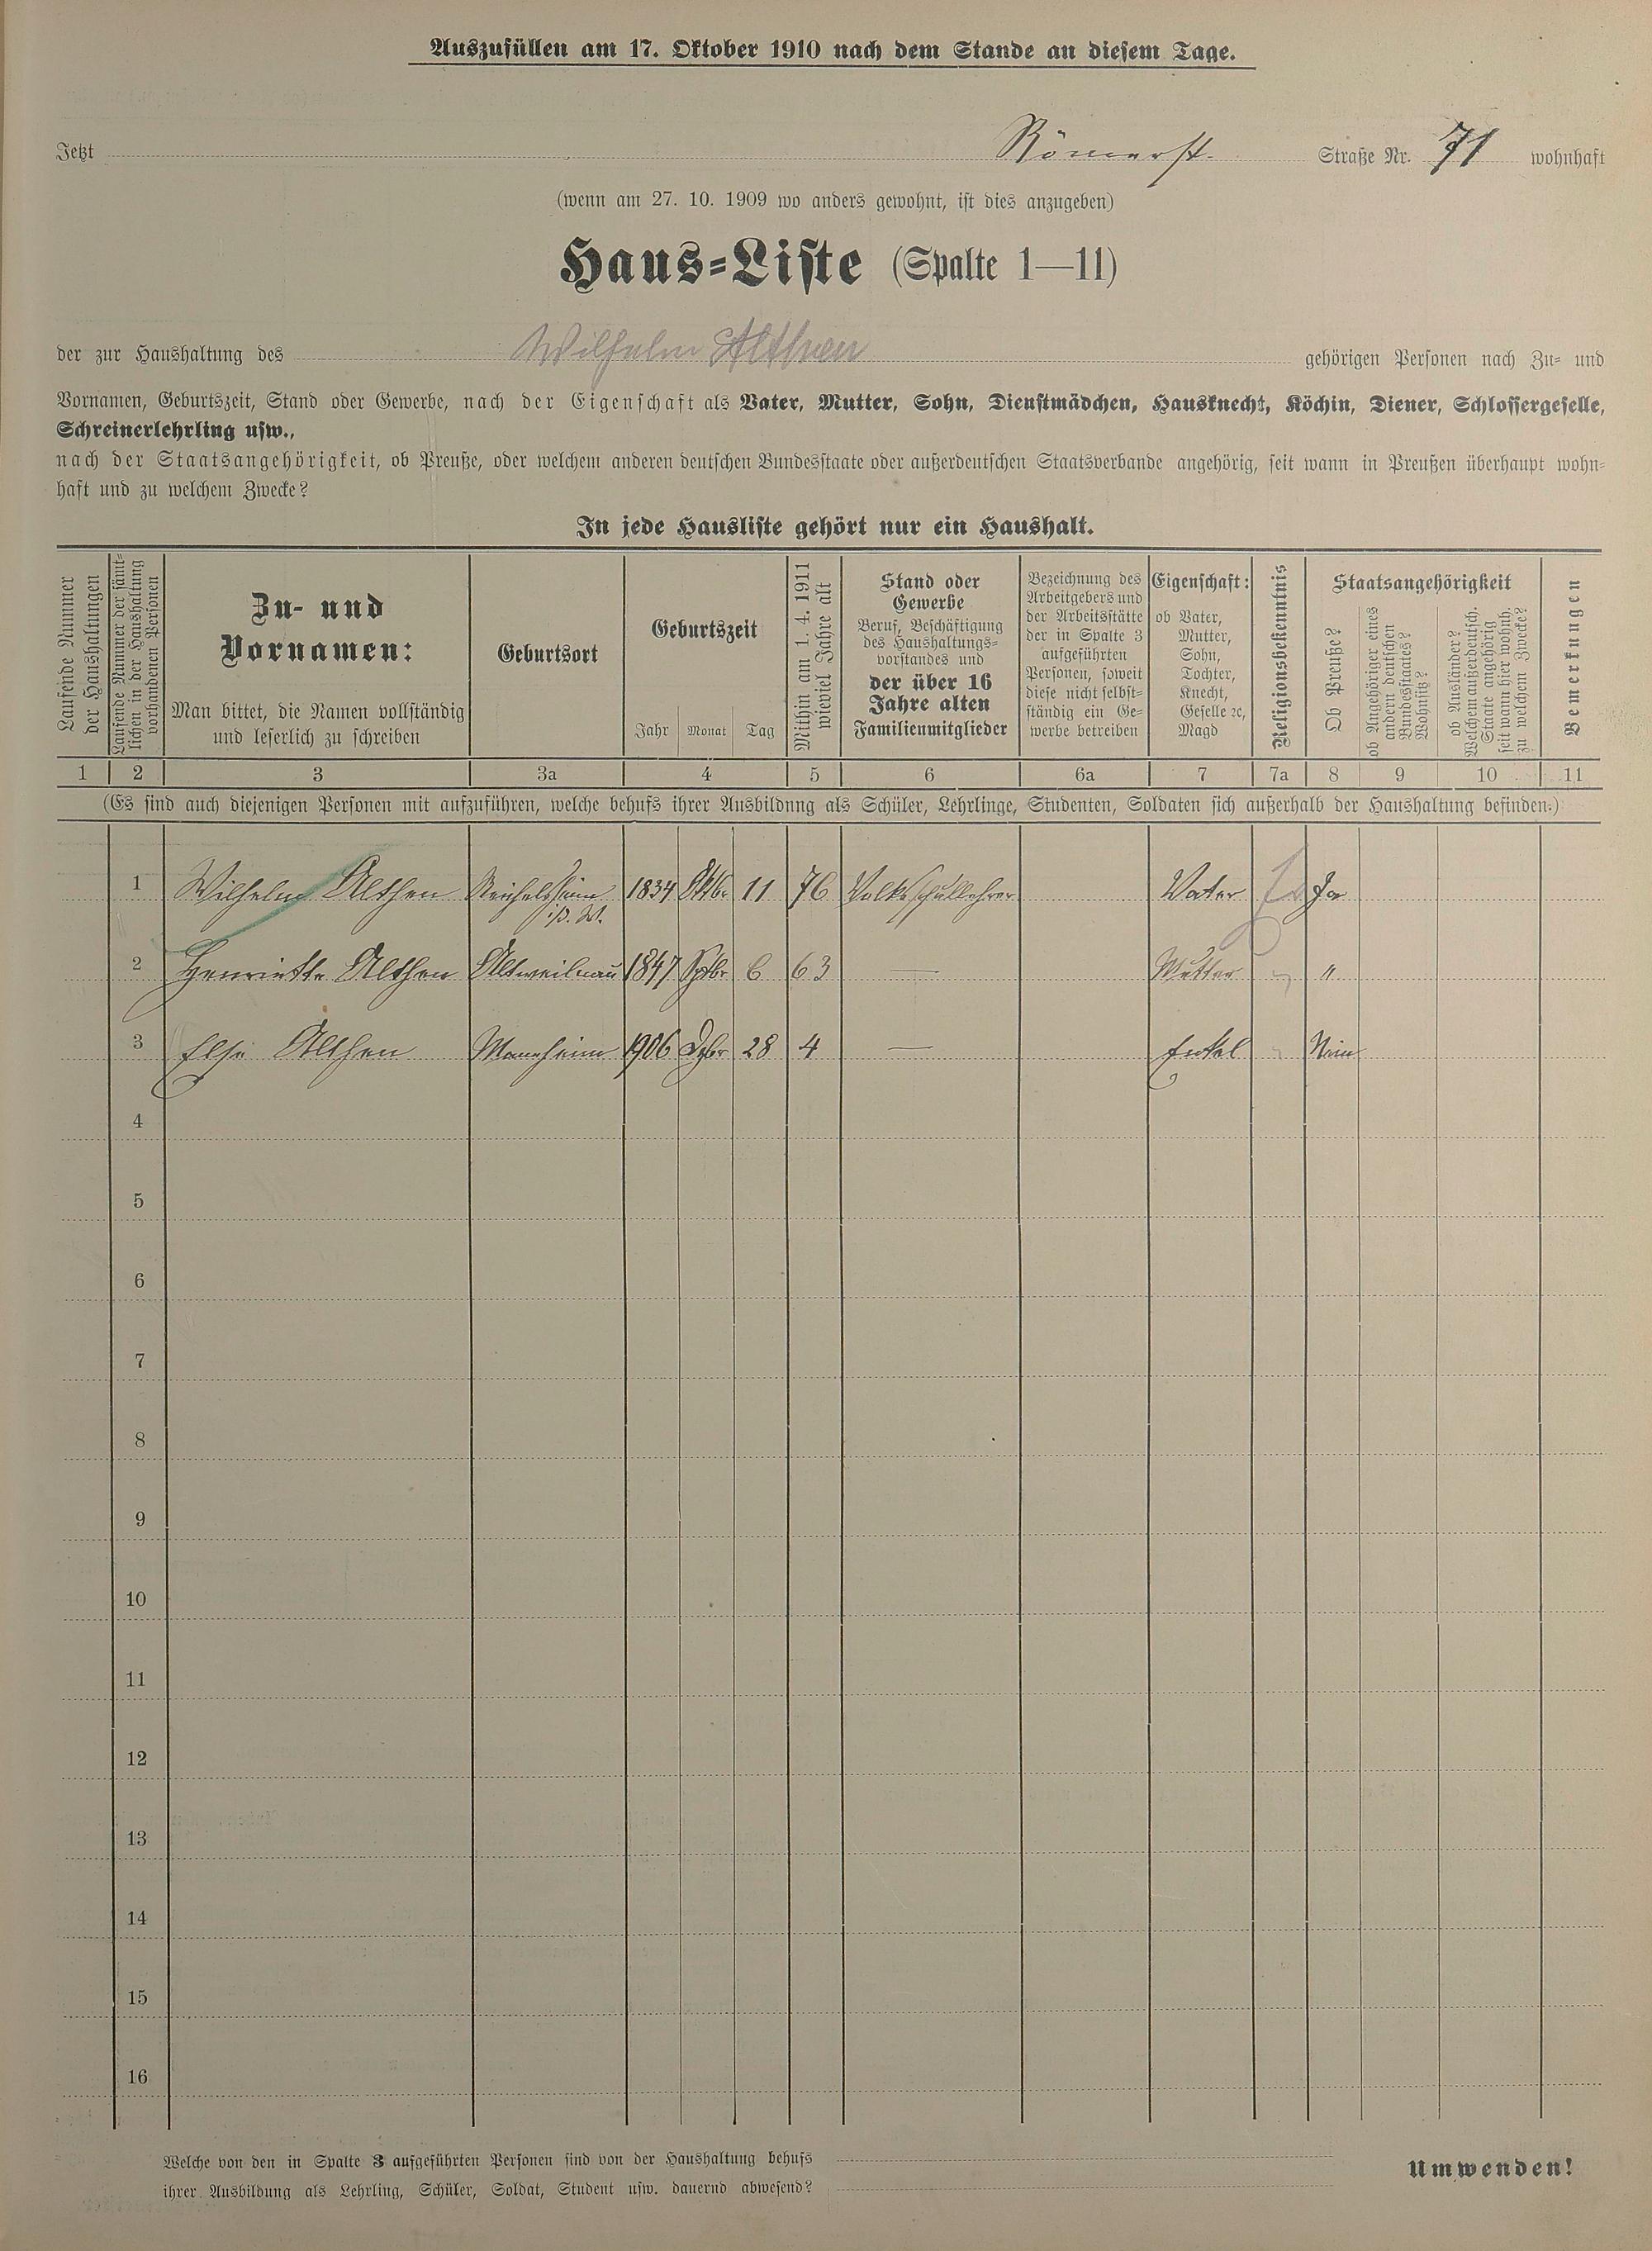 Auszufüllen am 17. Oktober 1910 nach dem Stande an diesem Tage.
Jetzt Römerst. Straße Nr. 71 wohnhaft
(wenn am 27. 10. 1909 wo anders gewohnt, ist dies anzugeben)
Haus-Liste (Spalte 1—11)
der zur Haushaltung des Wilhelm Althen gehörigen Personen nach Zu- und
Vornamen, Geburtszeit, Stand oder Gewerbe, nach der Eigenschaft als Vater, Mutter, Sohn, Dienstmädchen, Hausknecht, Köchin, Diener, Schlossergeselle,
Schreinerlehrling usw.,
nach der Staatsangehörigkeit, ob Preuße, oder welchem anderen deutschen Bundesstaate oder außerdeutschen Staatsverbande angehörig, seit wann in Preußen überhaupt wohn-
haft und zu welchem Zwecke?
In jede Hausliste gehört nur ein Haushalt.
Laufende Nummer
der Haushaltungen
Laufende Nummer der sämt-
lichen in der Haushaltung
vorhandenen Personen
Zu- und
Vornamen:
Man bittet, die Namen vollständig
und leserlich zu schreiben
Geburtsort
Geburtszeit
Jahr Monat Tag
Mithin am 1. 4. 1911
wieviel Jahre alt
Stand oder
Gewerbe
Beruf, Beschäftigung
des Haushaltungs-
vorstandes und
der über 16
Jahre alten
Familienmitglieder
Bezeichnung des
Arbeitgebers und
der Arbeitsstätte
der in Spalte 3
aufgeführten
Personen, soweit
diese nicht selbst-
ständig ein Ge-
werbe betreiben
Eigenschaft:
ob Vater,
Mutter,
Sohn,
Tochter,
Knecht,
Geselle ꝛc,
Magd
Religionsbekenntnis
Staatsangehörigkeit
Ob Preuße?
ob Angehöriger eines
andern deutschen
Bundesstaates?
Wohnsitz?
ob Ausländer?
Welchem außerdeutsch.
Staate angehörig
seit wann hier wohnh.
zu welchem Zwecke?
Bemerkungen
1 2 3 3a 4 5 6 6a 7 7a 8 9 10 11
(Es sind auch diejenigen Personen mit aufzuführen, welche behufs ihrer Ausbildung als Schüler, Lehrlinge, Studenten, Soldaten sich außerhalb der Haushaltung befinden.)
1 Wilhelm Althen Reichelsheim 1834 Oktbr 11 76 Volksschullehrer Vater Ja
i/d. W.
2 Henriette Althen Altweilnau 1847 Sptbr 6 63 — Mutter "
3 Else Althen Mannheim 1906 Dzbr 28 4 — Enkel Nein
4
5
6
7
8
9
10
11
12
13
14
15
16
Welche von den in Spalte 3 aufgeführten Personen sind von der Haushaltung behufs
ihrer Ausbildung als Lehrling, Schüler, Soldat, Student usw. dauernd abwesend?
Umwenden!